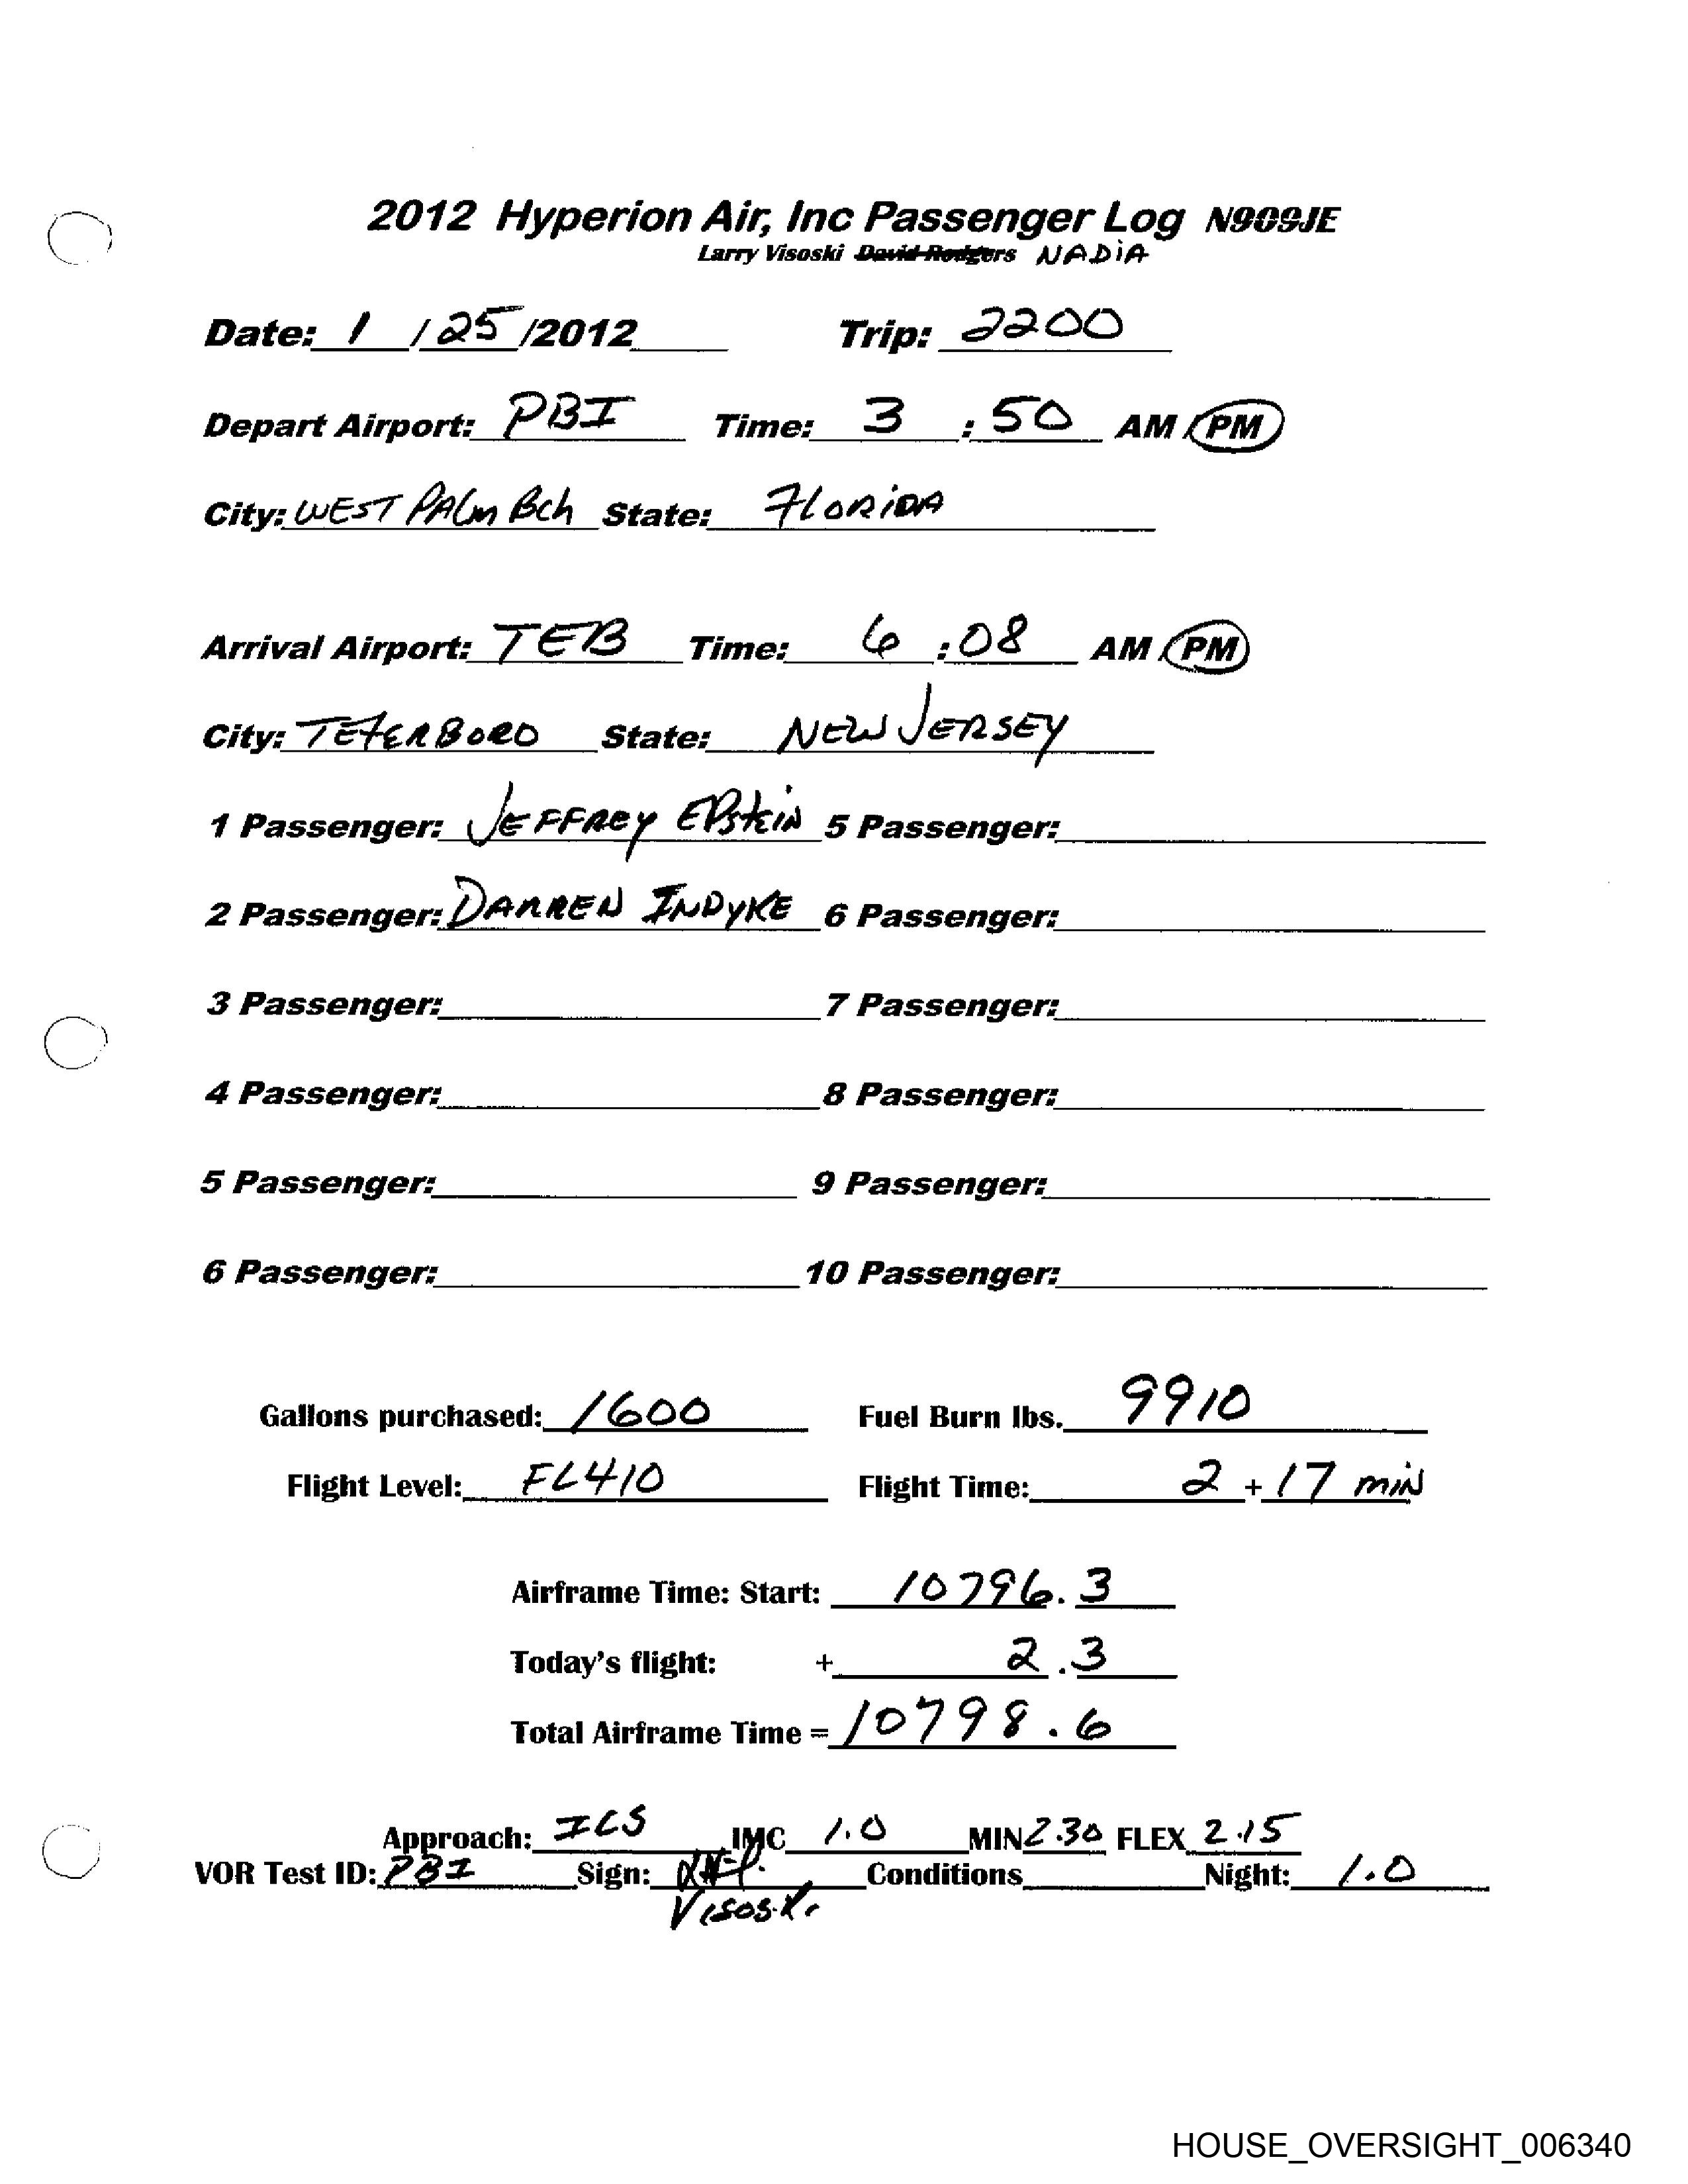 2012 Hyperion Air, Inc Passenger Log N909JE
Larry Visoski David Rodgers NADiA
Date: 1 / 25 /2012 Trip: 2200
Depart Airport: PBI Time: 3 : 50 AM / PM
City: WEST PALm Bch State: FLORiDA
Arrival Airport: TEB Time: 6 : 08 AM / PM
City: TETERBORO State: NEW JERSEY
1 Passenger: JEFFREY EPSTEiN 5 Passenger:
2 Passenger: DARREN INDYKE 6 Passenger:
3 Passenger: 7 Passenger:
4 Passenger: 8 Passenger:
5 Passenger: 9 Passenger:
6 Passenger: 10 Passenger:
Gallons purchased: 1600 Fuel Burn lbs. 9910
Flight Level: FL410 Flight Time: 2 + 17 miN
Airframe Time: Start: 10796.3
Today's flight: + 2.3
Total Airframe Time = 10798.6
Approach: ILS IMC 1.0 MIN 2.30 FLEX 2.15
VOR Test ID: PBI Sign: Conditions Night: 1.0
Visoski
HOUSE_OVERSIGHT_006340